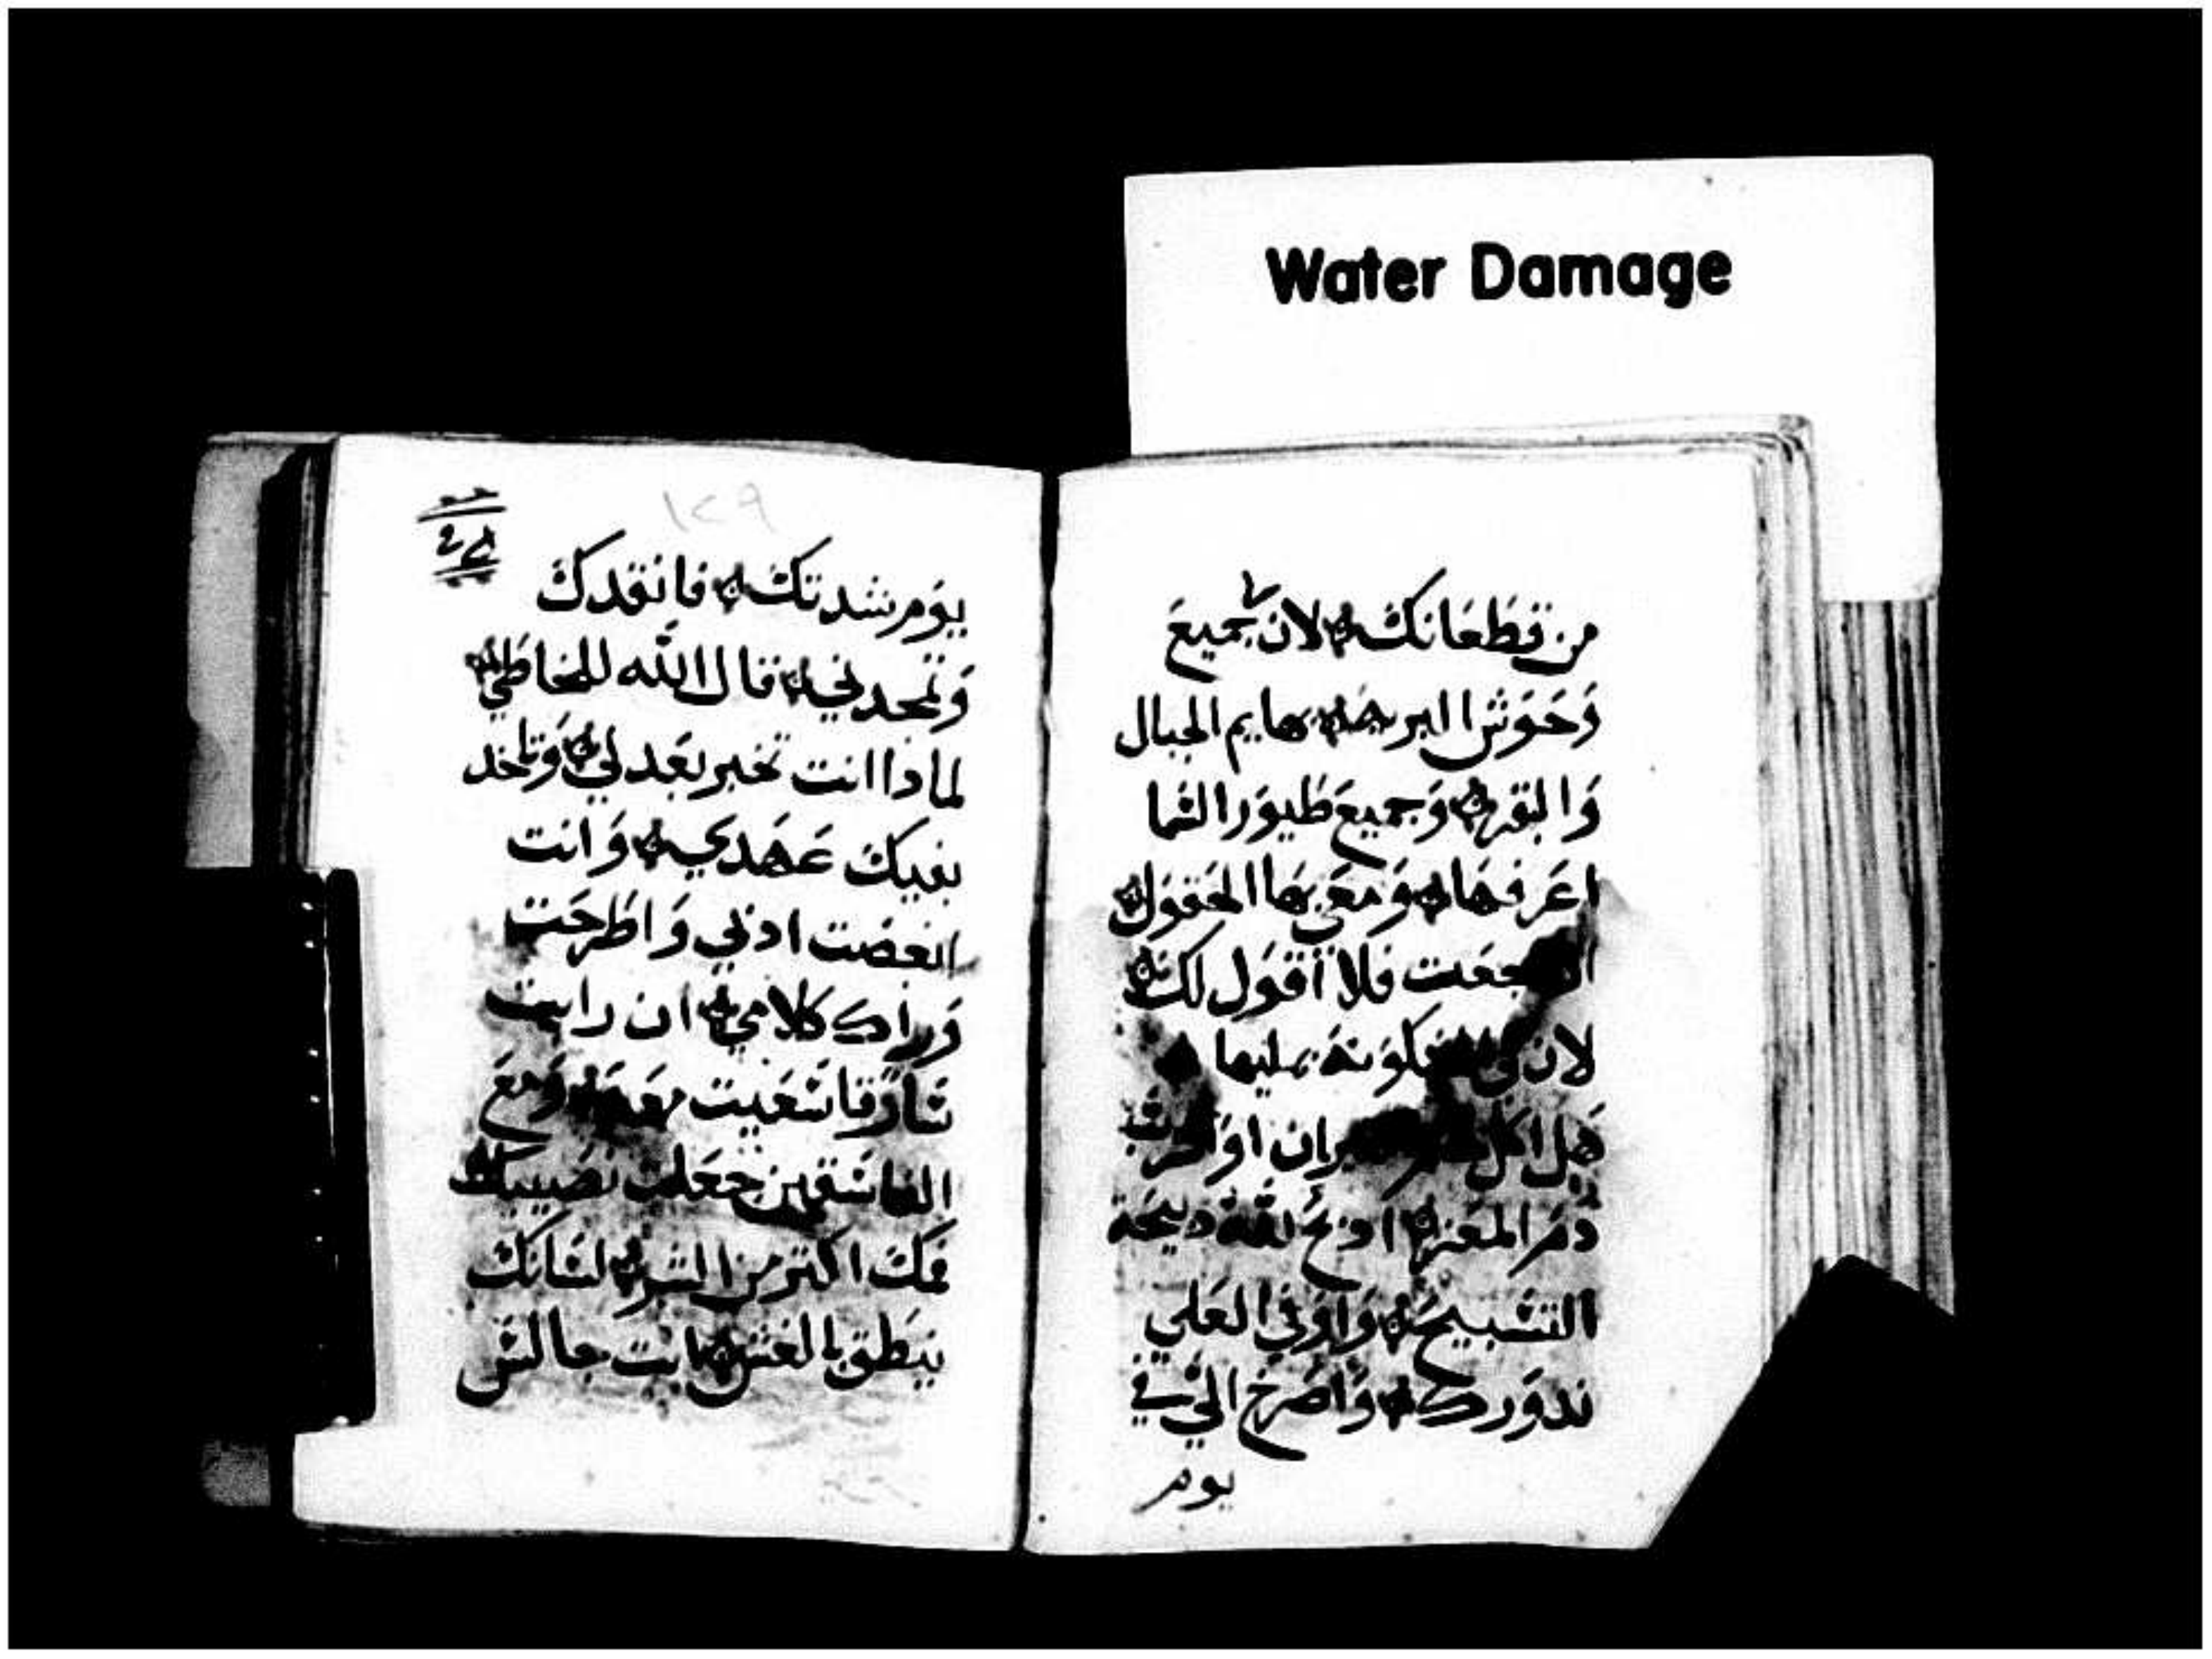 Water Damage
من قطعانك لان جميع
وحوش البريه بهايم الجبال
والبقر وجميع طيور السما
اعرفها ومعي بها الحقول
جعت فلا أقول لك
لان لي المسكونة مليها
هل اكل او اشرب
دم المعز ادبح لله دبيحة
التسبيح واوفي العلي
ندورك واصرخ الي في
يوم
١٢٩
يوم شدتك فانقدك
وتمجدني قال الله للخاطي
لماذا انت تخبر بعدلي وتاخد
بفيك عهدي وانت
ابغضت ادبي واطرحت
وراك كلامي ان رايت
سارقا سعيت معه ومع
الفاسقين جعلت نصيبك
فمك اكتر من الشر لسانك
ينطق بالغش انت جالس